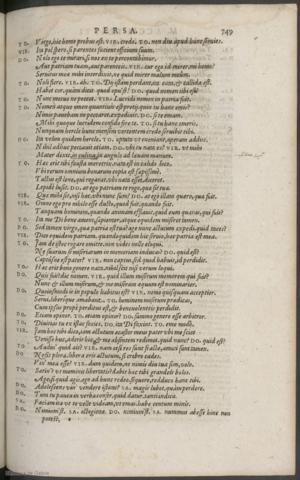 PERSA. 749
TO. Virgo, hic homo probus est. VIR. credo. TO. non diu apud hunc seruies.
VIR. Ita pol spero, si parentes facient officium suum.
DO. Nolo ego te mirari, si nos ex te percontabimur,
Aut patriam tuam, aut parenteis. VIR. cur ego id mirer, mi homo?
Seruitus mea mihi interdixit, ne quid mirer malum meum.
TO. Noli flere. VIR. ah. TO. Di istam perdant, ita catа, & callida est.
Habet cor, quam dicit quod opu'st? DO. quod nomen tibi est?
TO. Nunc metuo ne peccet. VIR. Lucridi nomen in patria fuit.
TO. Nomen atque omen quantiuis est preti; quin tu hanc emis?
Nimis pauebam ne peccaret. expediuit. DO. si te emam,
Mihi quoque lucridem confido fore te. TO. si tu hanc emeris,
Nunquam hercle hunc mensem vortentem credo seruibit tibi.
DO. Ita velim quidem hercle. TO. optata vt eueniant, operam addito.
Nihil adhuc peccauit etiam. DO. vbi tu nata es? VIR. vt mihi
Mater dixit, in culina in angulo ad leuam manum.
TO. Hac erit tibi fausta meretrix: nata est in calido loco,
Vbi rerum omnium bonarum copia est sæpissime.
Tactus est leno, qui rogarat, vbi nata esset, diceret.
Lepide lusit. DO. at ego patriam te rogo, quæ sit tua.
VIR. Quæ mihi sit, nisi hæc vbi nunc sum? DO. at ego illam quæro, quæ fuit.
VIR. Omne ego pro nihilo esse duco, quod fuit, quando fuit.
Tanquam hominem, quando animam efflauit, quid eum quæras, qui fuit?
TO. Ita me Di bene ament, sapienter, atque equidem miseret tamen.
DO. Sed tamen virgo, quæ patria est tua? age nunc actutum expedi. quid taces?
VIR. Dico equidem patriam. quando quidem hic seruio, hæc patria est mea.
TO. Iam de istoc rogare omitte. non vides nolle eloqui,
Ne suarum se miseriarum in memoriam inducas? DO. quid est?
Captusne est pater? VIR. non captus, sed quod habuit, id perdidit.
TO. Hæc erit bono genere nata. nihil scit nisi verum loqui.
DO. Quis fuit? dic nomen. VIR. quid illum miserum memorem qui fuit?
Nunc & illum miserum, & me miseram æquum est nominarier.
DO. Quoiusmodi is in populo habitus est? VIR. nemo quisquam acceptior.
Serui, liberique amabant. TO. hominem miserum prædicas,
Cum ipsus prope perditus est, & beneuolenteis perdidit.
DO. Etiam opinor. TO. etiam opinor? DO. summo genere esse arbitror.
TO. Diuitias tu ex istac facies. DO. ita Di faxint. TO. eme modo.
VIR. Iam hoc tibi dico, iam actutum ecastor meus pater vbi me sciet
Venisse huc, aderit hic, & me abs te redimet. quid nunc? DO. quid est?
TO. Audin' quid ait? VIR. nam etsi res sunt fractæ, amici sunt tamen.
DO. Nolis plora. libera eris actutum, si crebro cades.
Vin' mea esse? VIR. dum quidem ne nimis diu tua sim, volo.
TO. Satin' vt meminit libertatis? dabit hæc tibi grandeis bolos.
Age, si quid agis, ego ad hunc redeo. sequere, reduco hanc tibi.
DO. Adolescens vin' vendere istam? SA. magis lubet, quàm perdere.
TO. Tum tu pauca in verba confer, quid datur, tanti indica.
SA. Faciam ita vt te velle video, vt emas: habe centum minis.
DO. Nimium'st. SA. octoginta. DO. nimium'st. SA. nummus abesse hinc non
potest,